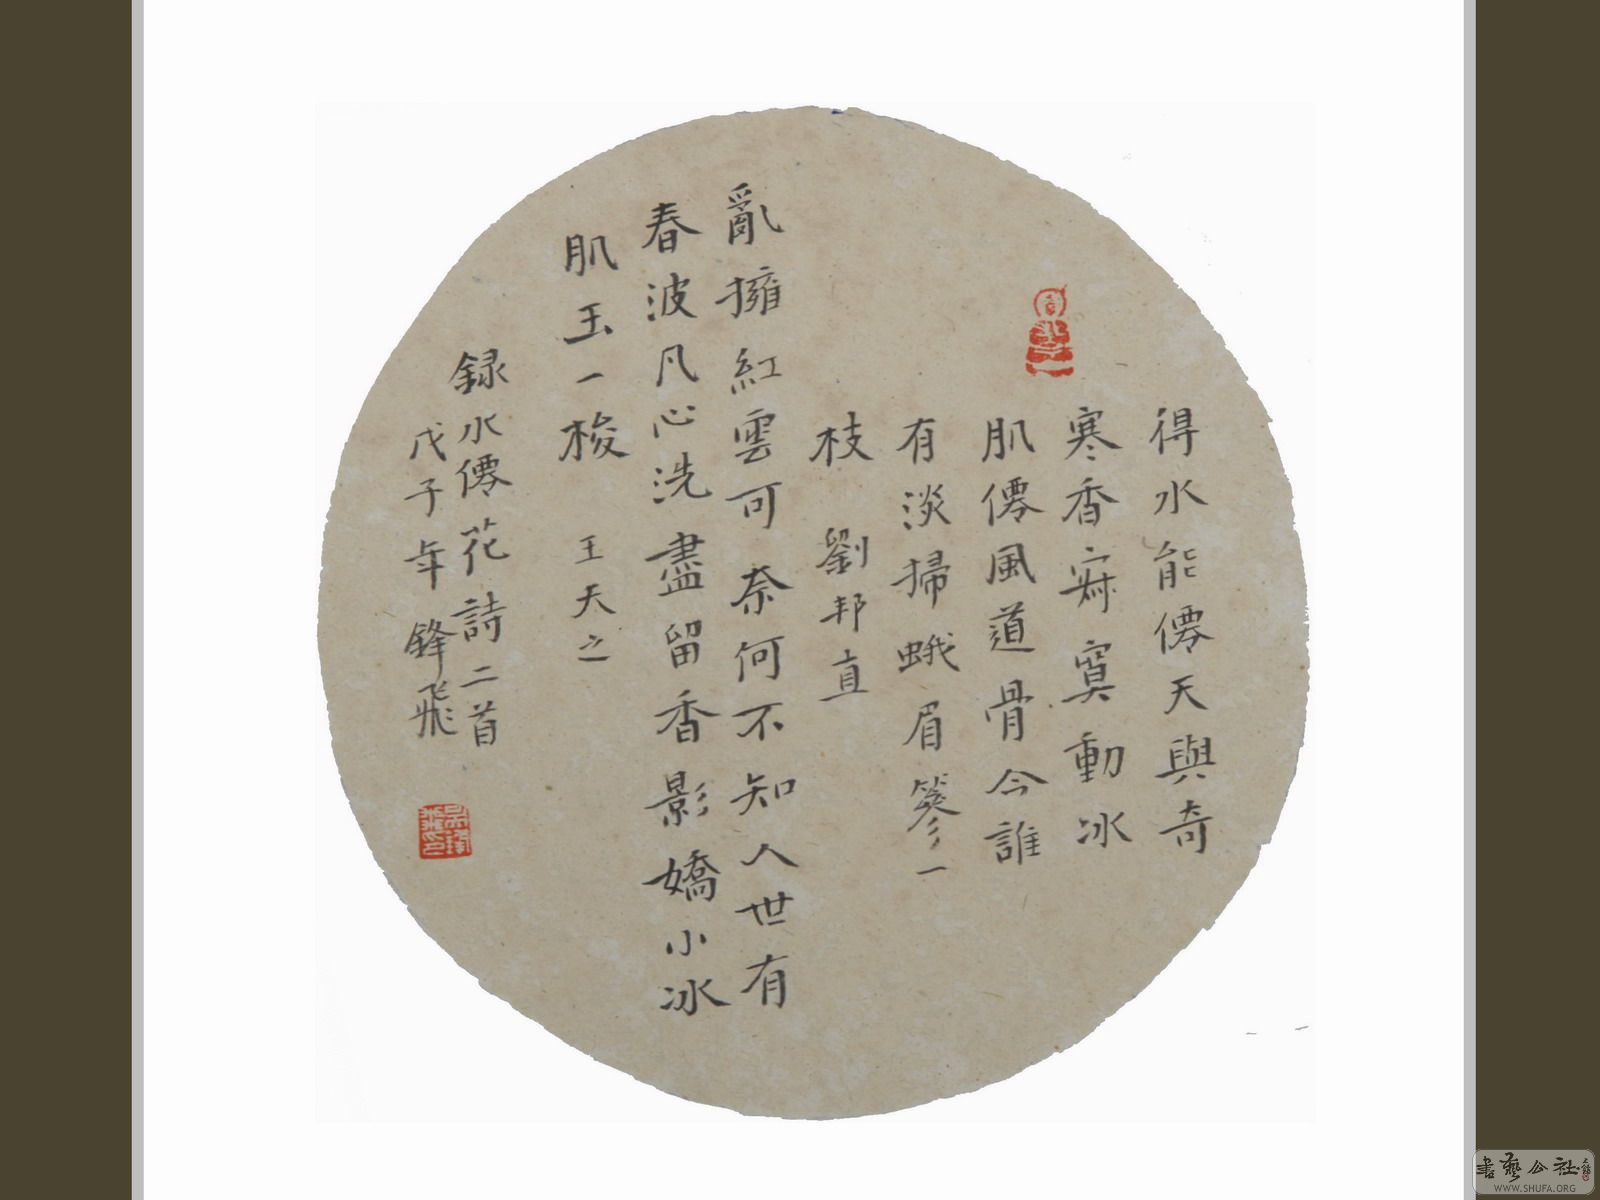 得水能僊天與奇
寒香寂寞動冰
肌僊風道骨今誰
有淡掃蛾眉篸一
枝 劉邦直
亂擁紅雲可奈何不知人世有
春波凡心洗盡留香影嬌小冰
肌玉一梭 王夫之
録水僊花詩二首
戊子年鋒飛
書藝公社
WWW.SHUFA.ORG